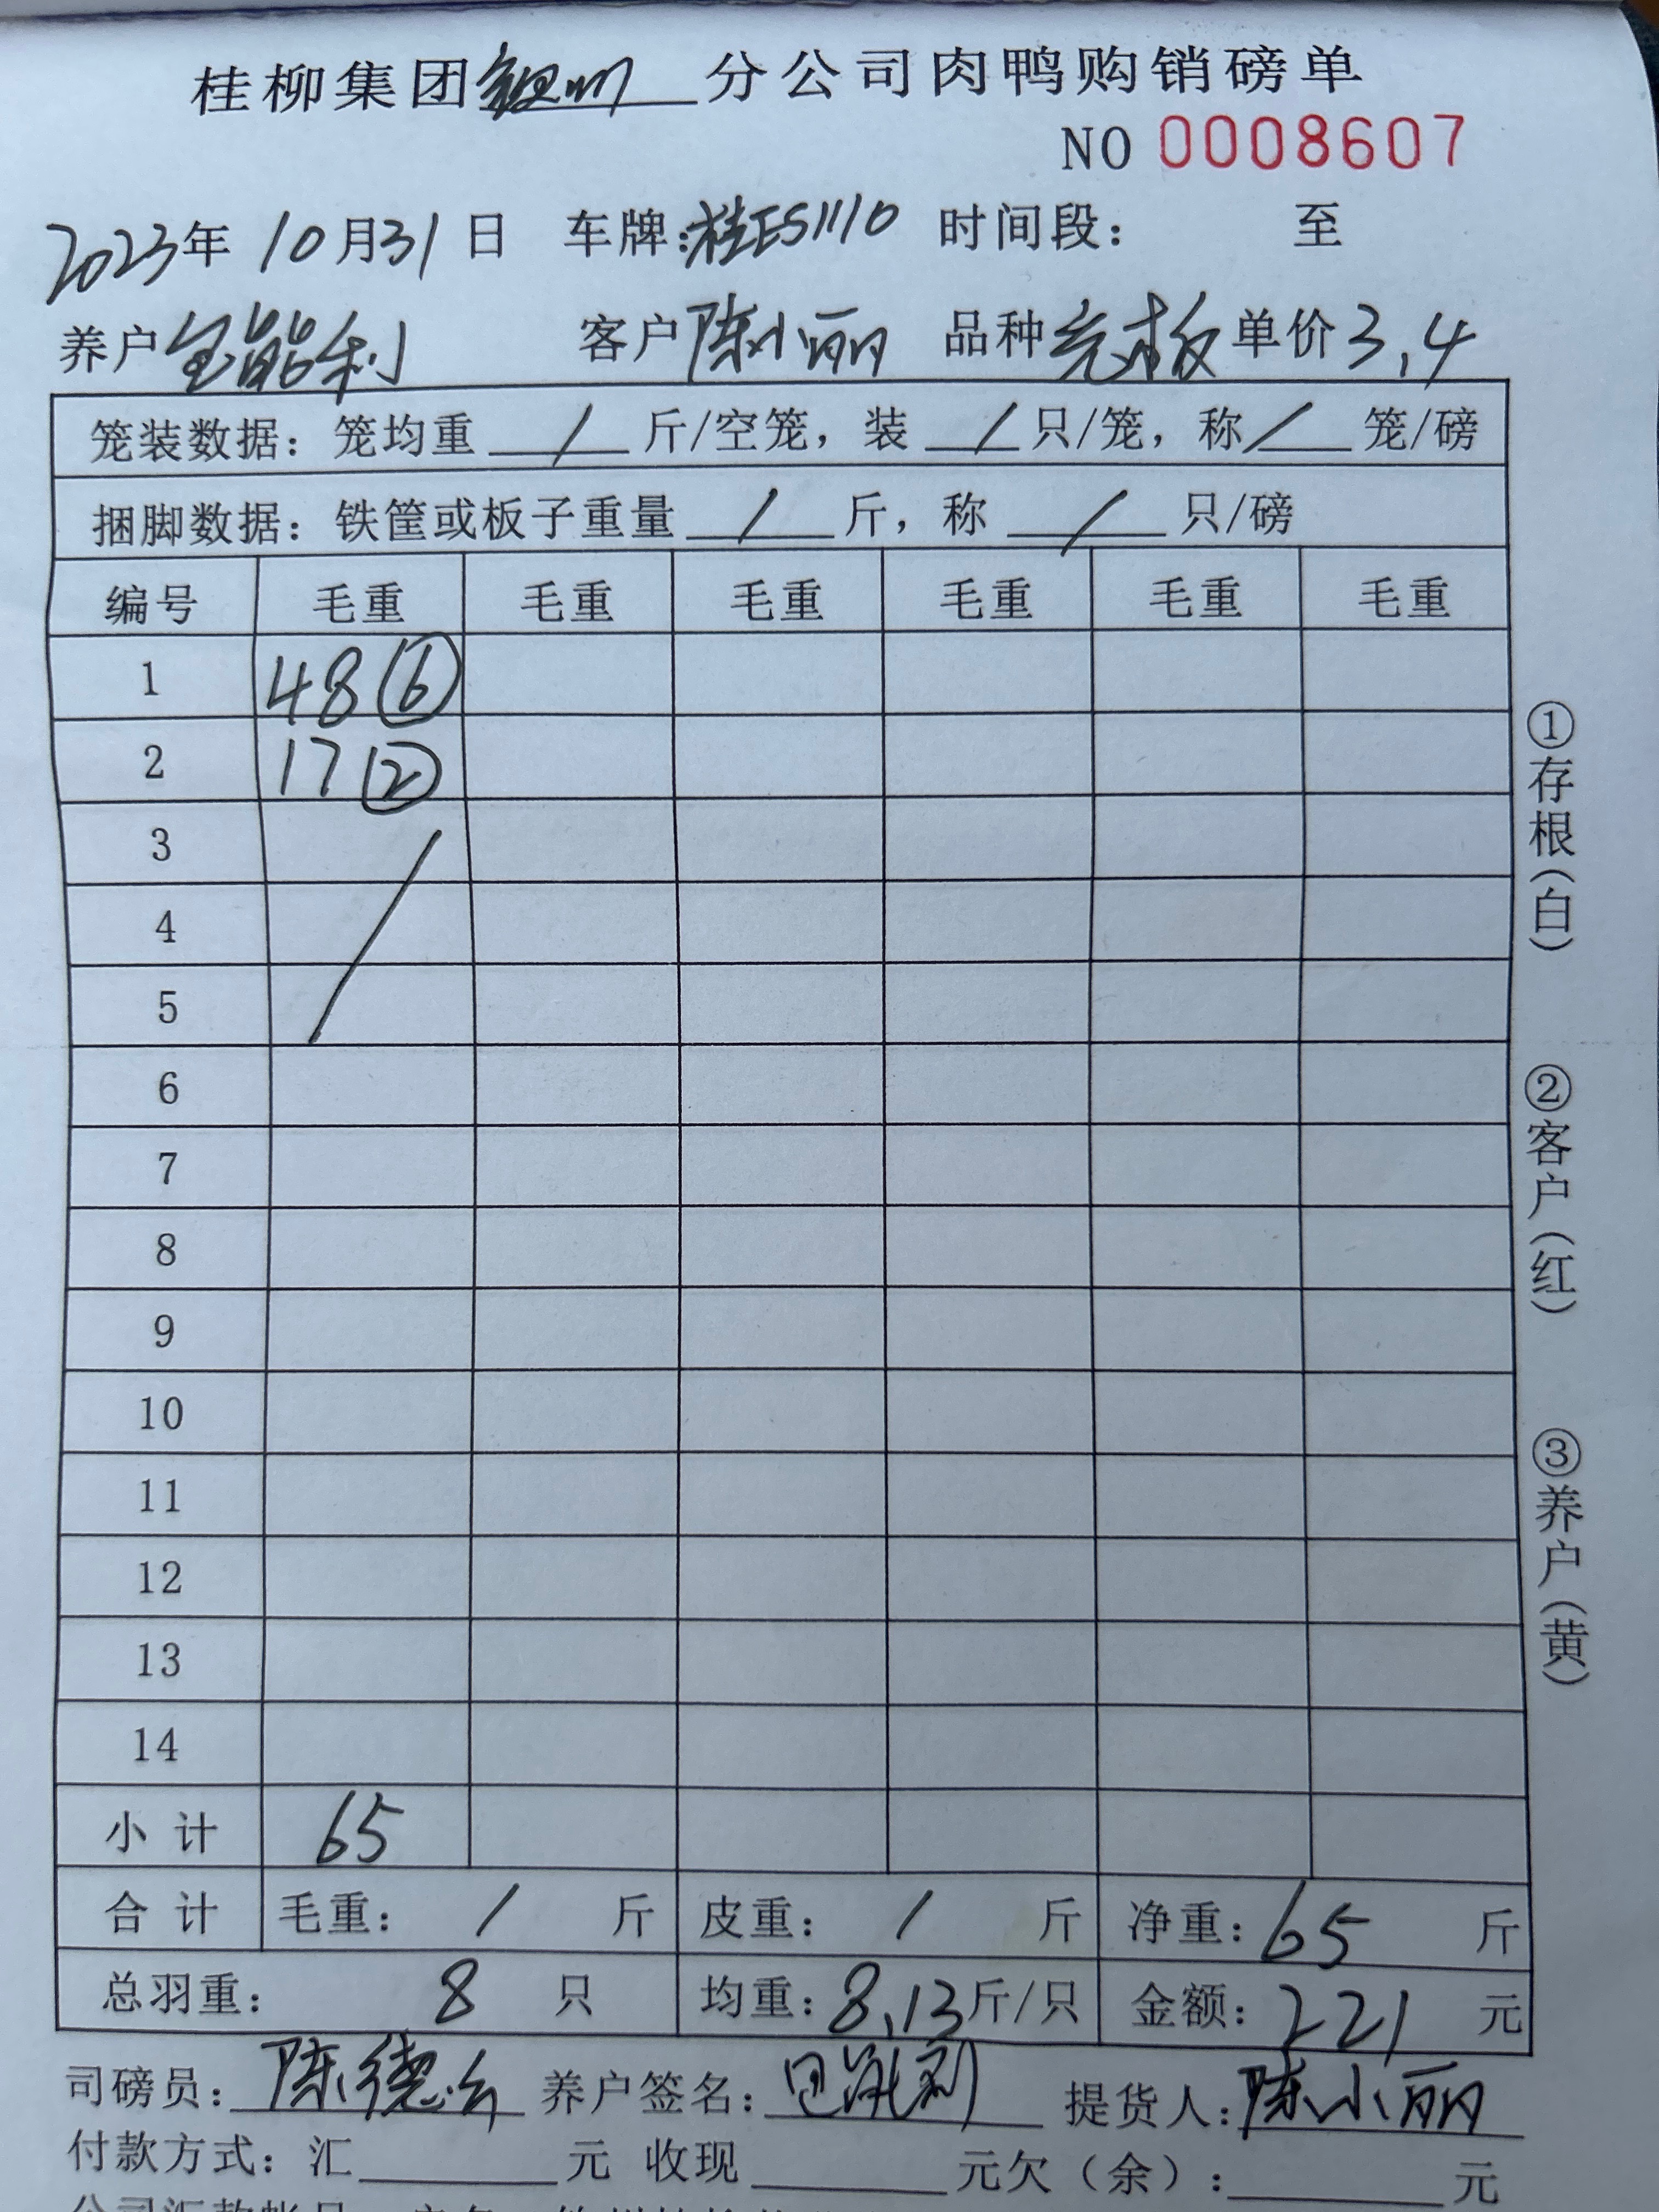 桂柳集团钦州分公司肉鸭购销磅单
NO 0008607
2023年 10月31日 车牌:桂E51110 时间段: 至
养户 能利 客户陈小丽 品种 单价3.4
笼装数据: 笼均重 / 斤/空笼, 装 / 只/笼, 称 / 笼/磅
捆脚数据: 铁筐或板子重量 / 斤, 称 / 只/磅
编号 毛重 毛重 毛重 毛重 毛重 毛重
1 48 ⑥
2 17 ②
3
4
5
6
7
8
9
10
11
12
13
14
小计 65
合计 毛重: / 斤 皮重: / 斤 净重: 65 斤
总羽重: 8 只 均重: 8.13斤/只 金额: 221 元
司磅员: 陈德 养户签名: 提货人: 陈小丽
付款方式: 汇 元 收现 元欠(余): 元
①存根(白)
②客户(红)
③养户(黄)